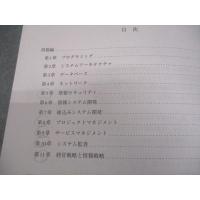 目 次
問題編
第1章 プログラミング
第2章 システムアーキテクチャ
第3章 データベース
第4章 ネットワーク
第5章 情報セキュリティ
第6章 情報システム開発
第7章 組込みシステム開発
第8章 プロジェクトマネジメント
第9章 サービスマネジメント
第10章 システム監査
第11章 経営戦略と情報戦略